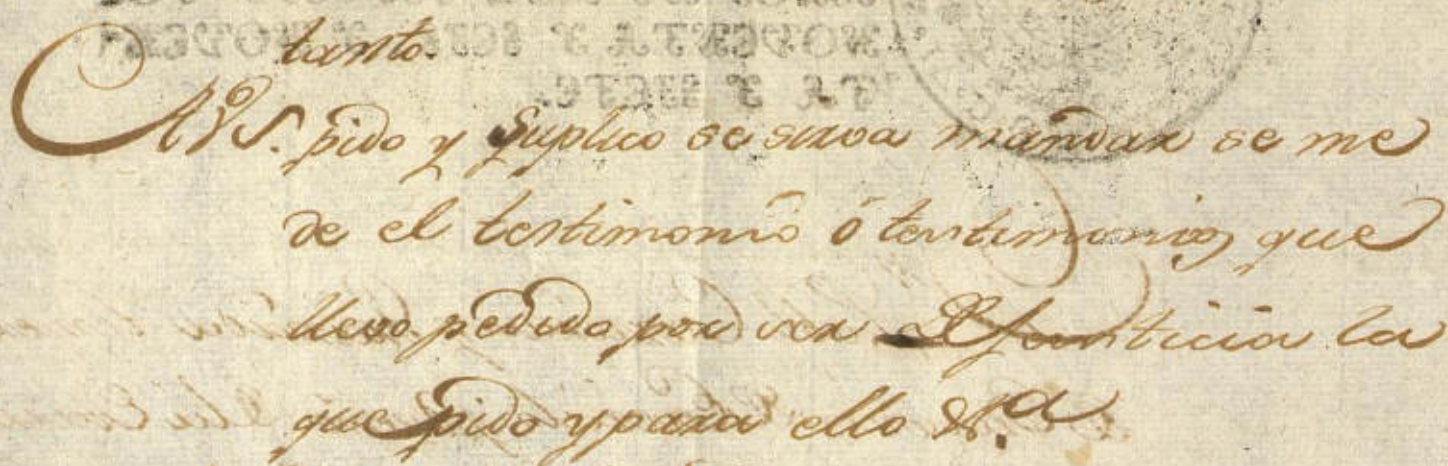 tanto.
A V S. pido y suplico se sirva mandar se me
de el testimonio ó testimonios que
llevo pedido por ser de Justicia la
que pido y para ello &.ª